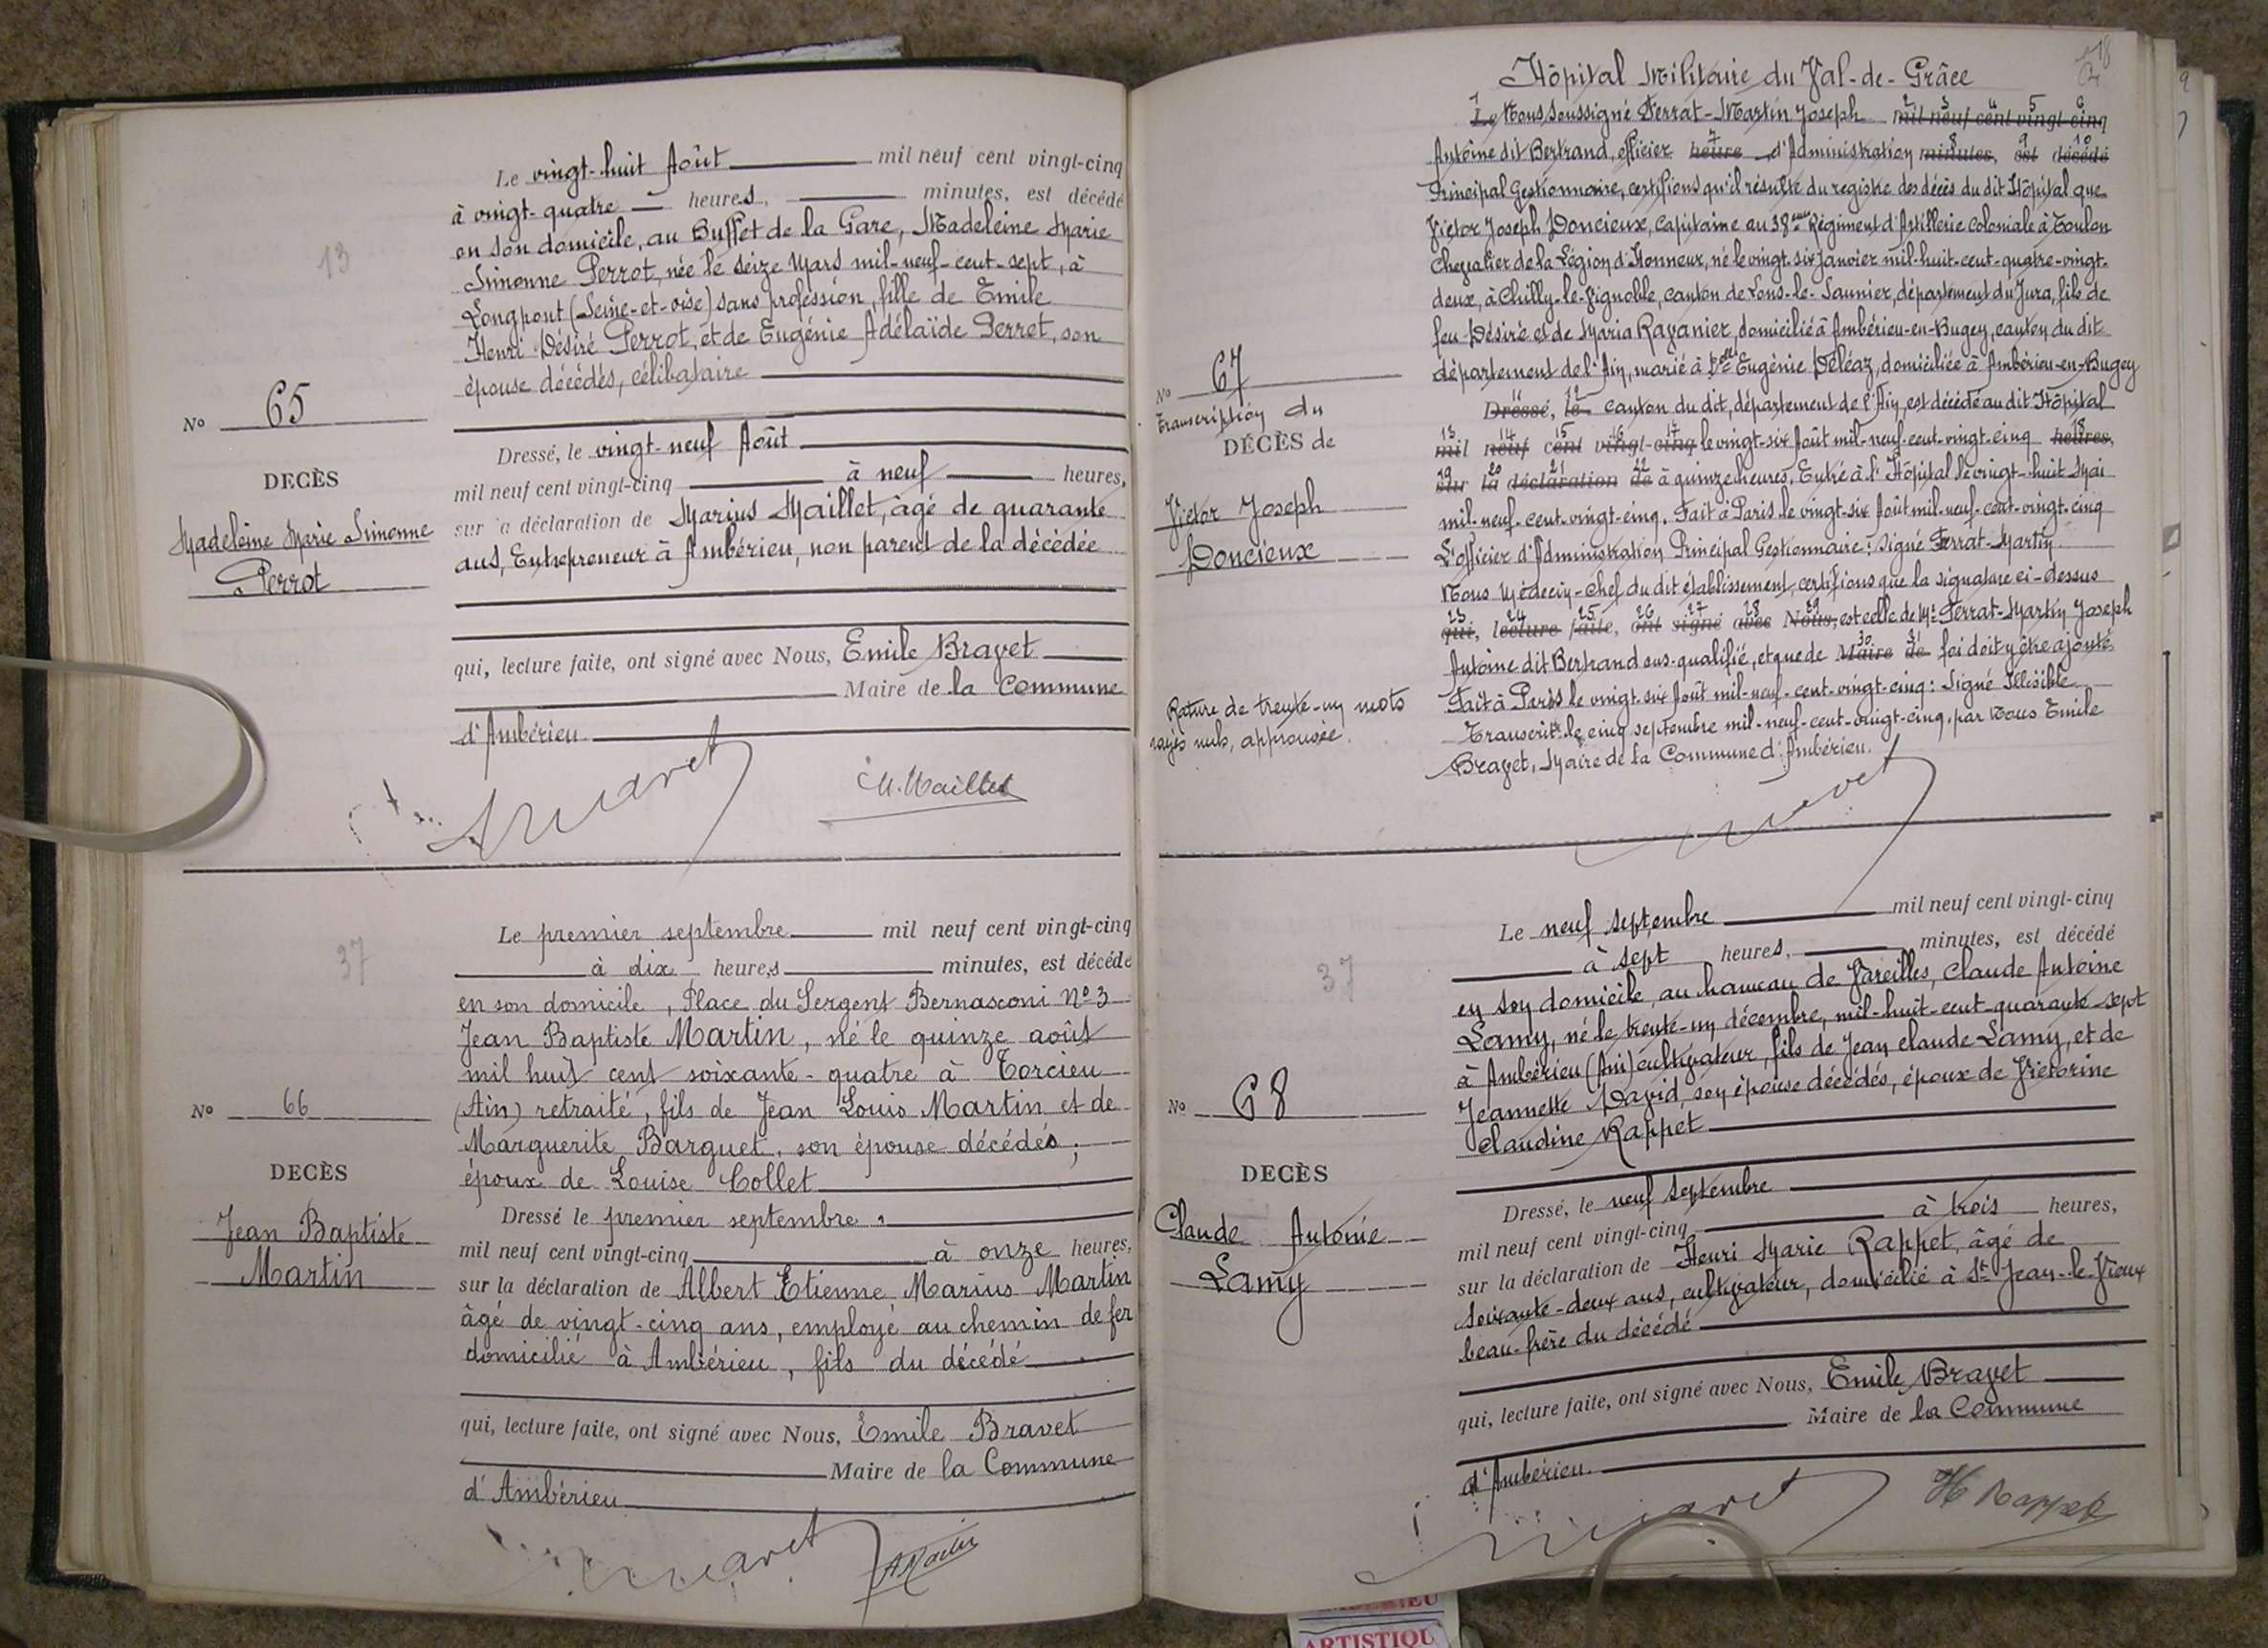 Le vingt-huit Août mil neuf cent vingt-cinq
à vingt-quatre heures, minutes, est décédé
en son domicile, au Buffet de la Gare, Madeleine Marie
Simonne Perrot, née le seize Mars mil-neuf-cent-sept, à
Longpont (Seine-et-oise) sans profession, fille de Emile
Henri Désiré Perrot, et de Eugénie Adélaïde Perret, son
épouse décédés, célibataire
13
No 65
DÉCÈS
Madeleine Marie Simonne
Perrot
Dressé, le vingt-neuf Août
mil neuf cent vingt-cinq à neuf heures,
sur la déclaration de Marius Maillet, âgé de quarante
ans, Entrepreneur à Ambérieu, non parent de la décédée
qui, lecture faite, ont signé avec Nous, Emile Bravet
Maire de la Commune
d'Ambérieu
Bravet M. Maillet
Le premier septembre mil neuf cent vingt-cinq
à dix heures minutes, est décédé
en son domicile, Place du Sergent Bernasconi No 3
Jean Baptiste Martin, né le quinze août
mil huit cent soixante-quatre à Torcieu
(Ain) retraité, fils de Jean Louis Martin et de
Marguerite Barguet, son épouse décédés;
époux de Louise Collet
37
No 66
DECÈS
Jean Baptiste
Martin
Dressé le premier septembre
mil neuf cent vingt-cinq à onze heures,
sur la déclaration de Albert Etienne Marius Martin
âgé de vingt-cinq ans, employé au chemin de fer
domicilié à Ambérieu, fils du décédé
qui, lecture faite, ont signé avec Nous, Emile Bravet
Maire de la Commune
d'Ambérieu
Bravet A Martin
Hôpital Militaire du Val-de-Grâce
1 2 3 4 5 6
Le Nous soussigné Ferrat-Martin Joseph mil neuf cent vingt-cinq
7 8 9 10
Antoine dit Bertrand, officier heure d'Administration minutes, est décédé
Principal Gestionnaire, certifions qu'il résulte du registre des décès du dit Hôpital que
Victor Joseph Doncieux, Capitaine au 38ème Régiment d'Artillerie Coloniale à Toulon
Chevalier de la Légion d'Honneur, né le vingt-six Janvier mil-huit-cent-quatre-vingt-
deux, à Chilly-le-Vignoble, canton de Lons-le-Saunier, département du Jura, fils de
feu Désiré et de Maria Ravanier, domicilié à Ambérieu-en-Bugey, canton du dit
département de l'Ain, marié à Delle Eugénie Deléaz, domiciliée à Ambérieu-en-Bugey
11 12
Dressé, le canton du dit, département de l'Ain, est décédé au dit Hôpital
13 14 15 16 17 18
mil neuf cent vingt-cinq le vingt-six Août mil-neuf-cent-vingt-cinq heures,
19 20 21 22
sur la déclaration de à quinze heures. Entré à l'Hôpital le vingt-huit Mai
mil-neuf-cent-vingt-cinq. Fait à Paris le vingt-six Août mil-neuf-cent-vingt-cinq
L'officier d'Administration Principal Gestionnaire: Signé Ferrat-Martin
Nous Médecin-Chef du dit établissement, certifions que la signature ci-dessus
23 24 25 26 27 28 29
qui, lecture faite, ont signé avec Nous, est celle de Mr Ferrat-Martin Joseph
30 31
Antoine dit Bertrand sus-qualifié, et que de Maire de foi doit y être ajouté.
Fait à Paris le vingt-six Août mil-neuf-cent-vingt-cinq: Signé Illisible
Transcrit le cinq septembre mil-neuf-cent-vingt-cinq, par Nous Emile
Bravet, Maire de la Commune d'Ambérieu.
No 67
Transcription du
DÉCÈS de
Victor Joseph
Doncieux
Rature de trente-un mots
rayés nuls, approuvée.
Bravet
Le neuf septembre mil neuf cent vingt-cinq
à sept heures, minutes, est décédé
en son domicile, au hameau de Vareilles, Claude Antoine
Lamy, né le trente-un décembre, mil-huit-cent-quarante-sept
à Ambérieu (Ain) cultivateur, fils de Jean Claude Lamy, et de
Jeannette David, son épouse décédés, époux de Victorine
Claudine Rappet
37
No 68
DECÈS
Claude Antonie
Lamy
Dressé, le neuf septembre
mil neuf cent vingt-cinq à trois heures,
sur la déclaration de Henri Marie Rappet, âgé de
soixante-deux ans, cultivateur, domicilié à St Jean-le-Vieux
beau-frère du décédé
qui, lecture faite, ont signé avec Nous, Emile Bravet
Maire de la Commune
d'Ambérieu.
Bravet H Rappet
ARTISTIQU